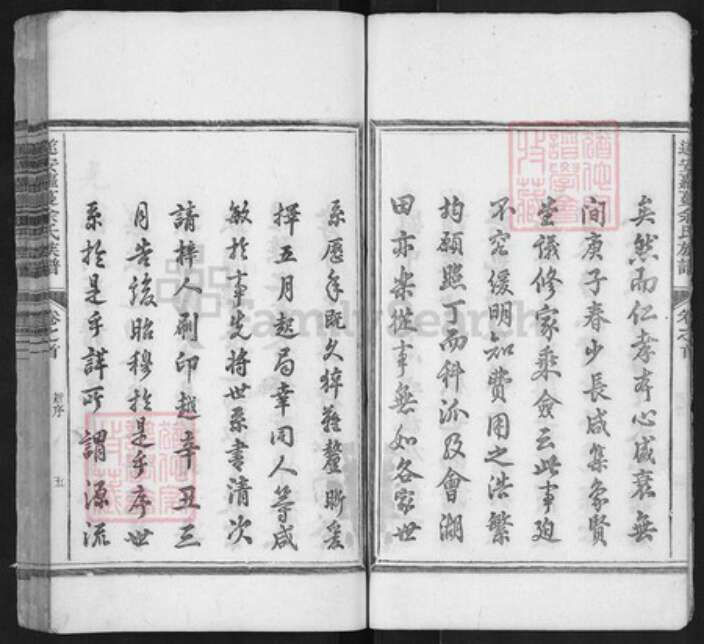 矣然而仁孝本心盛衰無
間庚子春少長咸集象賢
堂議修家乘僉云此事迫
不容緩明知費用之浩繁
均願照丁而科派及會湖
田亦樂從事無如各家世
系歷年既久猝難釐晰爰
擇五月起局幸同人等咸
敏於事先將世系書清次
請梓人刷印越辛丑三
月告竣昭穆於是乎序世
系於是乎詳所謂源流
余氏族譜
卷之首
序
五
余氏族譜
卷之首
FamilySearch